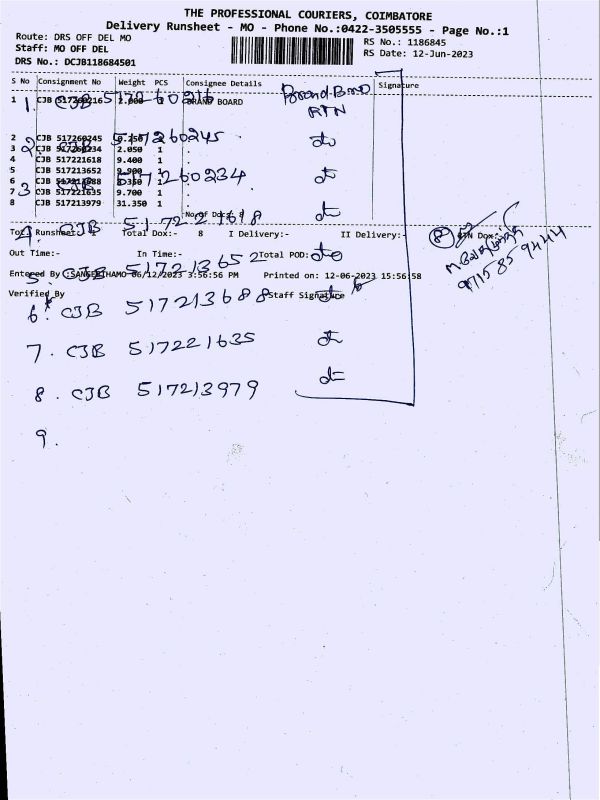 THE PROFESSIONAL COURIERS, COIMBATORE
Delivery Runsheet - MO - Phone No.:0422-3505555 - Page No.:1
Route: DRS OFF DEL MO
RS No.: 1186845
Staff: MO OFF DEL
RS Date: 12-Jun-2023
DRS No.: DCJB118684501
S No Consignment No Weight PCS Consignee Details Signature
1 CJB 517260216 2.000 BRAND BOARD
1. CJB 517260216 RTN
2 CJB 517260245 0.250 1 .
2. CJB 517260245
3 CJB 517260234 2.050 1 .
4 CJB 517221618 9.400 1 .
5 CJB 517213652 9.900 1 .
6 CJB 1 .
3 CJB 517260234
7 CJB 517221635 9.700 1 .
8 CJB 517213979 31.350 1 .
No of Docs: 8
4. CJB 517221618
Runsheet:- 1 Total Dox:- 8 I Delivery:- II Delivery:- RTN Dox:-
8
Out Time:- In Time:- Total POD:-
5. CJB 517213652
Entered By 06/12/2023 3:56:56 PM Printed on: 12-06-2023 15:56:58
97158 59444
Verified By Staff Signature
6. CJB 517213688
7. CJB 517221635
8. CJB 517213979
9.